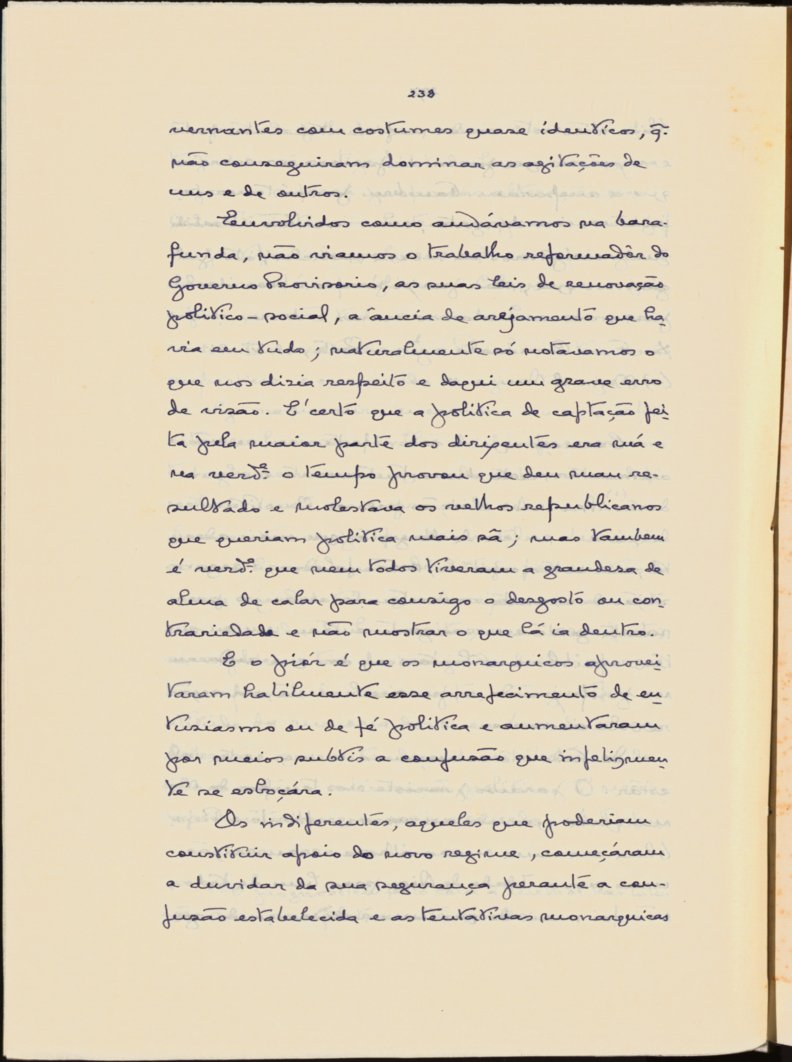 238
vernantes com costumes quase identicos, q̃.
não conseguiram dominar as agitações de
uns e de outros.
Envolvidos como andávamos na bara-
funda, não viamos o trabalho reformadôr do
Governo Provisorio, as suas leis de renovação
politico-social, a ância de arejamento que ha-
via em tudo; naturalmente só notavamos o
que nos dizia respeito e daqui um grave erro
de visão. É certo que a politica de captação fei-
ta pela maior parte dos dirigentes era má e
na verd.e o tempo provou que deu mau re-
sultado e molestava os velhos republicanos
que queriam politica mais sã; mas tambem
é verd.e que nem todos tiveram a grandeza de
alma de calar para consigo o desgosto ou con-
trariedade e não mostrar o que lá ia dentro.
E o piór é que os monarquicos aprovei-
taram habilmente esse arrefecimento de en-
tusiasmo ou de fé politica e aumentaram
por meios subtis a confusão que infelizmen-
te se esboçára.
Os indiferentes, aqueles que poderiam
constituir apoio do novo regime, começáram
a duvidar da sua segurança perante a con-
fusão estabelecida e as tentativas monarquicas